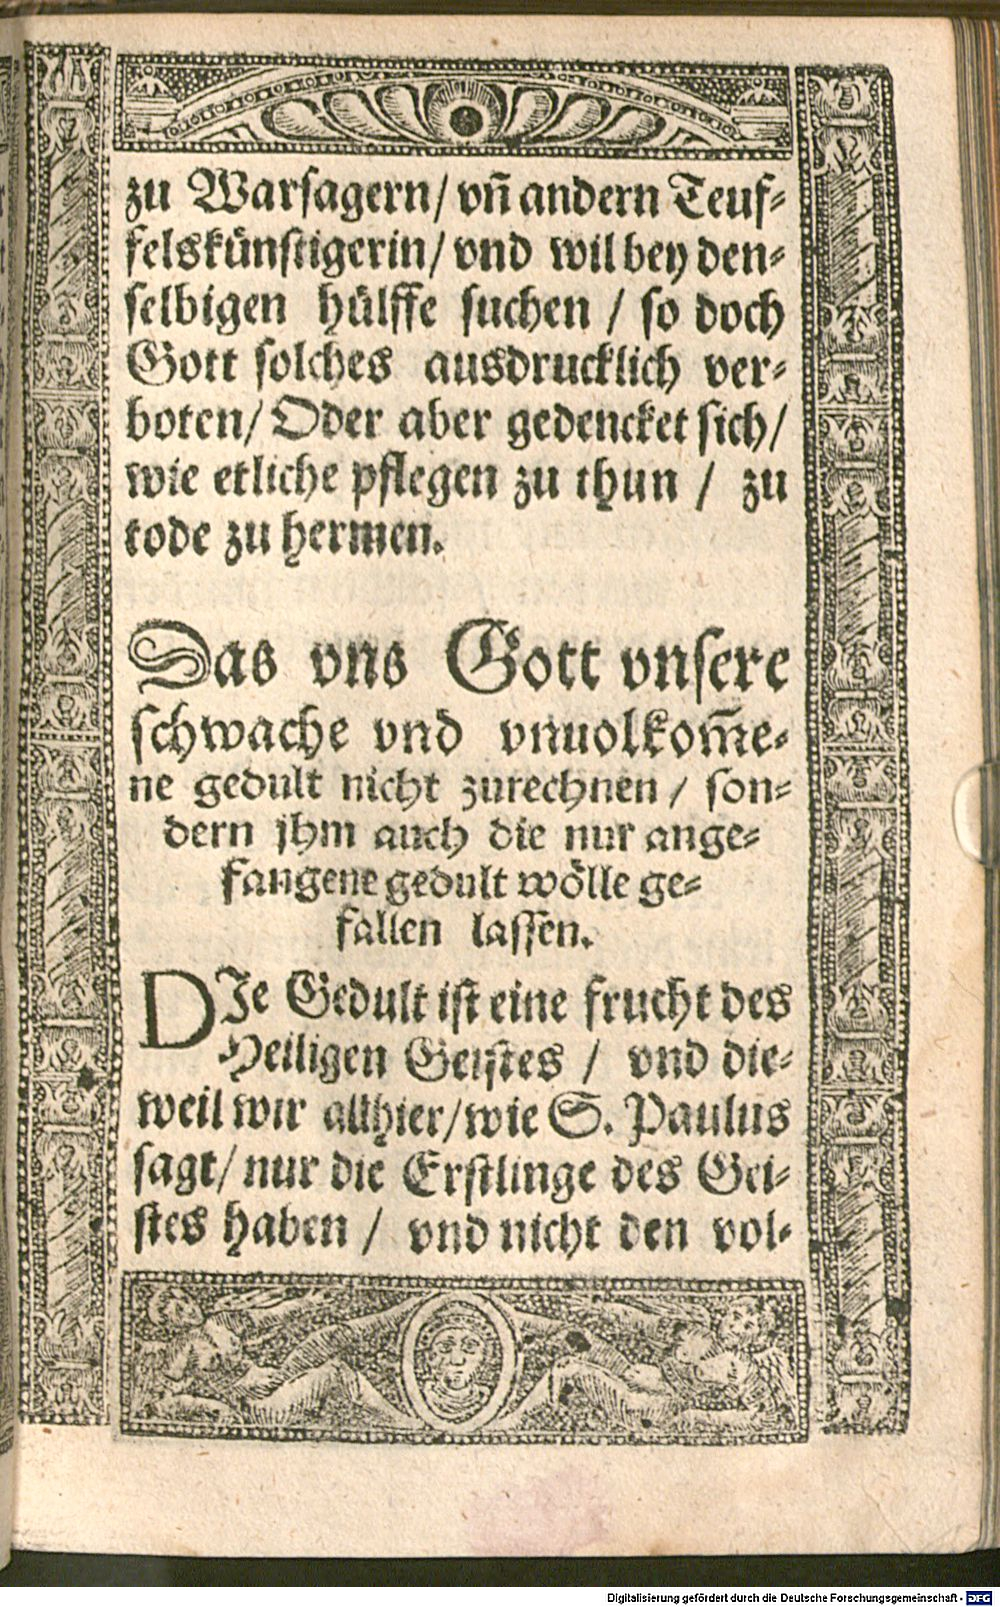 zu Warſagern/ vñ andern Teuf⸗
felskünſtigerin/ vnd wil bey den⸗
ſelbigen hülffe ſuchen / ſo doch
Gott ſolches ausdrucklich ver⸗
boten/ Oder aber gedencket ſich/
wie etliche pflegen zu thun / zu
tode zu hermen.
Das vns Gott vnſere
ſchwache vnd vnuolkom̃e⸗
ne gedult nicht zurechnen / ſon⸗
dern jhm auch die nur ange⸗
fangene gedult wölle ge⸗
fallen laſſen.
DIe Gedult iſt eine frucht des
Heiligen Geiſtes / vnd die⸗
weil wir allhier/ wie S. Paulus
ſagt/ nur die Erſtlinge des Gei⸗
ſtes haben / vnd nicht den vol⸗
Digitalisierung gefördert durch die Deutsche Forschungsgemeinschaft - DFG